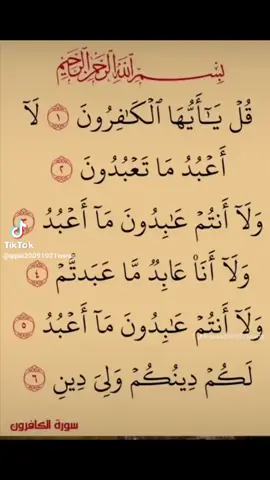 بِسْمِ اللَّهِ الرَّحْمَٰنِ الرَّحِيمِ
قُلۡ يَـٰٓأَيُّهَا ٱلۡكَـٰفِرُونَ ١ لَآ
أَعۡبُدُ مَا تَعۡبُدُونَ ٢
وَلَآ أَنتُمۡ عَـٰبِدُونَ مَآ أَعۡبُدُ
وَلَآ أَنَا۠ عَابِدٞ مَّا عَبَدتُّمۡ ٤
وَلَآ أَنتُمۡ عَـٰبِدُونَ مَآ أَعۡبُدُ ٥
لَكُمۡ دِينُكُمۡ وَلِيَ دِينِ ٦
سورة الكافرون
TikTok